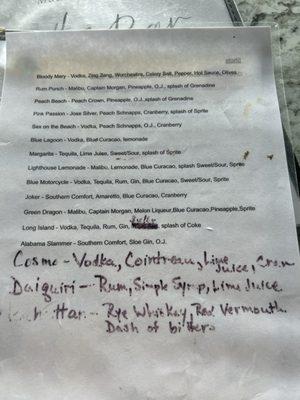 Bloody Mary - Vodka, Zing Zang, Worchestire, Celery Salt, Pepper, Hot Sauce, Olives
Rum Punch - Malibu, Captain Morgan, Pineapple, O.J., splash of Grenadine
Peach Beach - Peach Crown, Pineapple, O.J, splash of Grenadine
Pink Passion - Jose Silver, Peach Schnapps, Cranberry, splash of Sprite
Sex on the Beach - Vodka, Peach Schnapps, O.J., Cranberry
Blue Lagoon - Vodka, Blue Curacao, lemonade
Margarita - Tequila, Lime Juice, Sweet/Sour, splash of Sprite
Lighthouse Lemonade - Malibu, Lemonade, Blue Curacao, splash Sweet/Sour, Sprite
Blue Motorcycle - Vodka, Tequila, Rum, Gin, Blue Curacao, Sweet/Sour, Sprite
Joker - Southern Comfort, Amaretto, Blue Curacao, Cranberry
Green Dragon - Malibu, Captain Morgan, Melon Liqueur, Blue Curacao, Pineapple, Sprite
Long Island - Vodka, Tequila, Rum, Gin, splash of Coke
Alabama Slammer - Southern Comfort, Sloe Gin, O.J.
Cosmo - Vodka, Cointreau, Lime Juice, Cran
Daiquiri - Rum, Simple Syrup, Lime Juice
Rye Whiskey, Red Vermouth
Dash of bitters